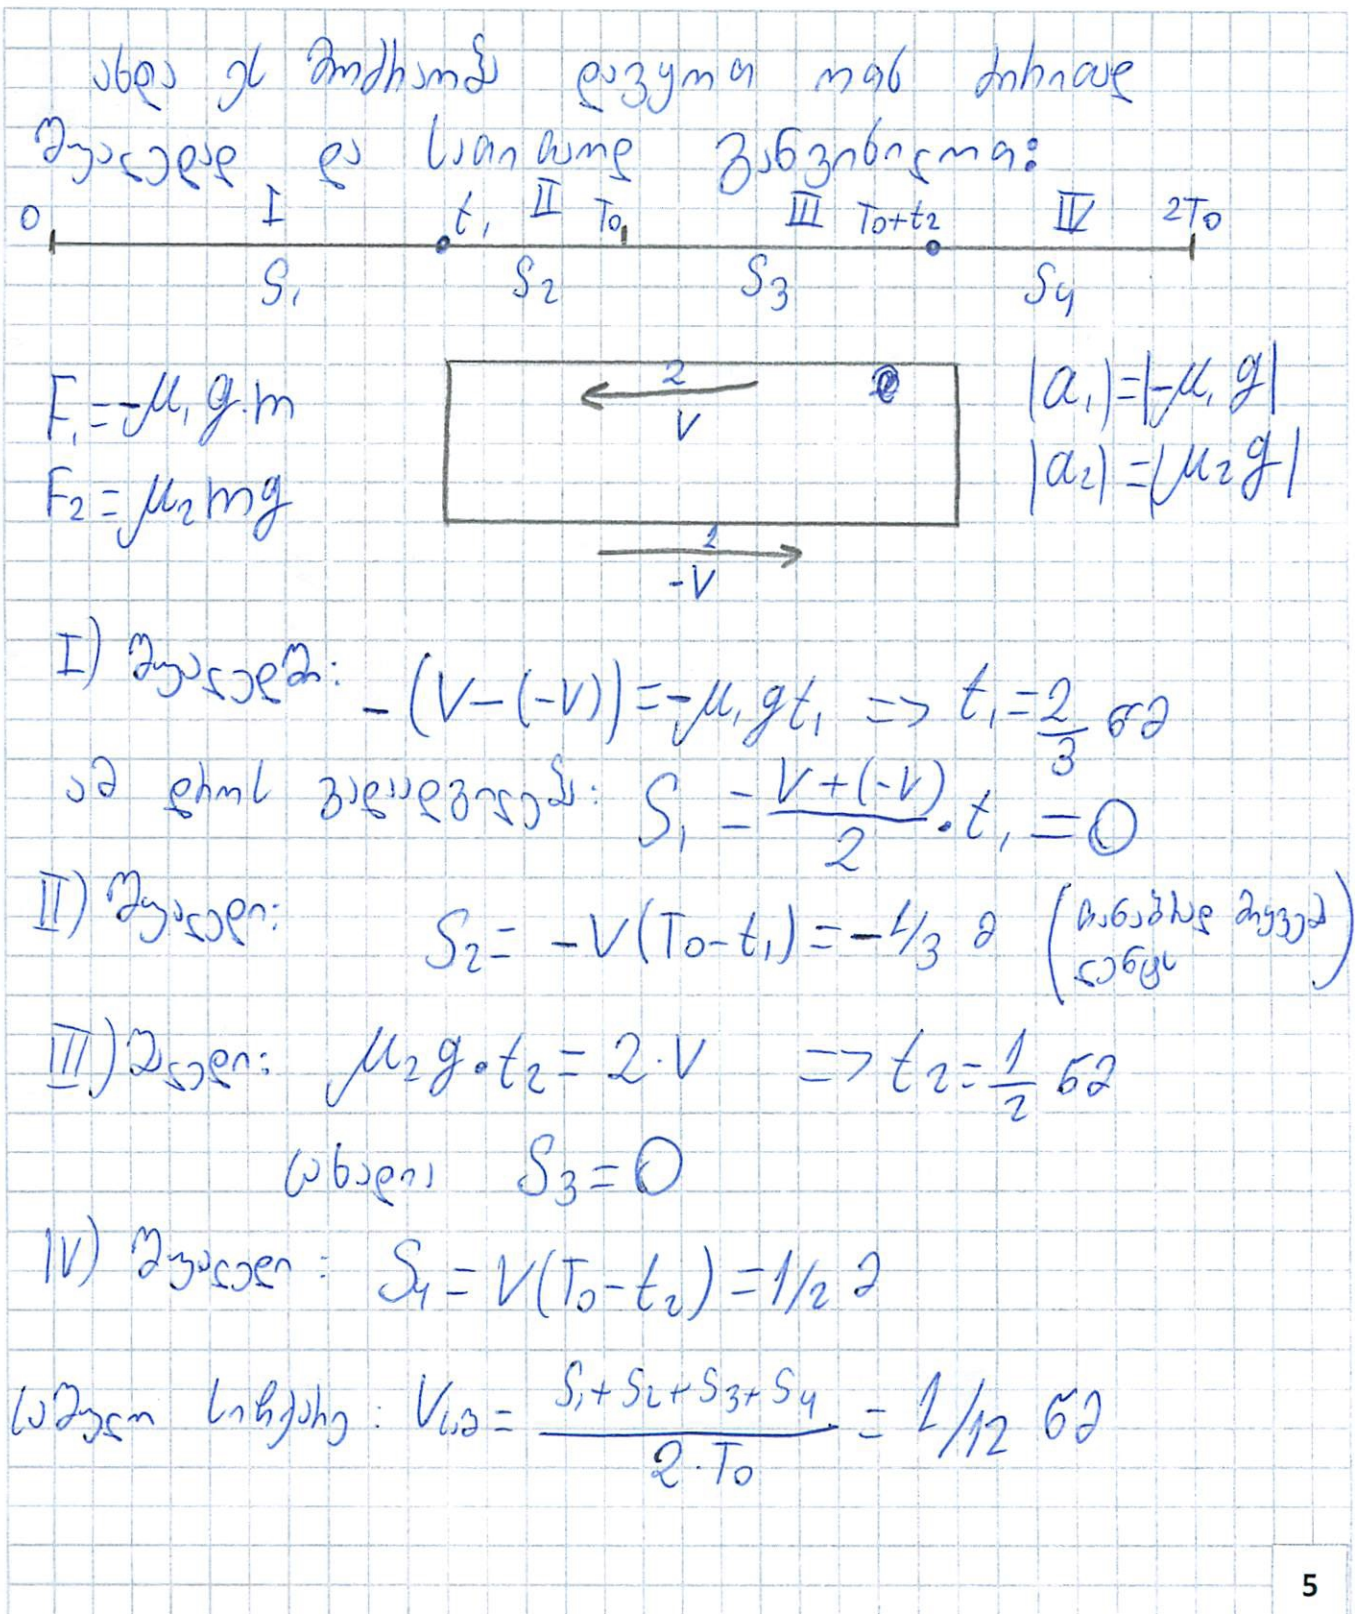 ახლა ეს მოძრაობა დავყოთ ოთხ ძირითად
შუალედად და სათითაოდ განვიხილოთ:
0 I t₁ II T₀ III T₀+t₂ IV 2T₀
S₁ S₂ S₃ S₄
F₁=-μ₁g·m
F₂=μ₂mg
2
V
1
-V
|a₁|=|-μ₁g|
|a₂|=|μ₂g|
I) შუალედში: -(V-(-V))=-μ₁gt₁ => t₁=2/3 წმ
ამ დროს გადაადგილება: S₁ = (V+(-V))/2·t₁=0
II) შუალედი: S₂= -V(T₀-t₁)=-1/3 მ (თანაბრად მიყვება
ლენტს)
III) შალედი: μ₂g·t₂=2·V => t₂=1/2 წმ
ცხადია S₃=0
IV) შუალედი: S₄=V(T₀-t₂)=1/2 მ
საშუალო სიჩქარე: = (S₁+S₂+S₃+S₄)/(2·T₀) = 1/12 წმ
5